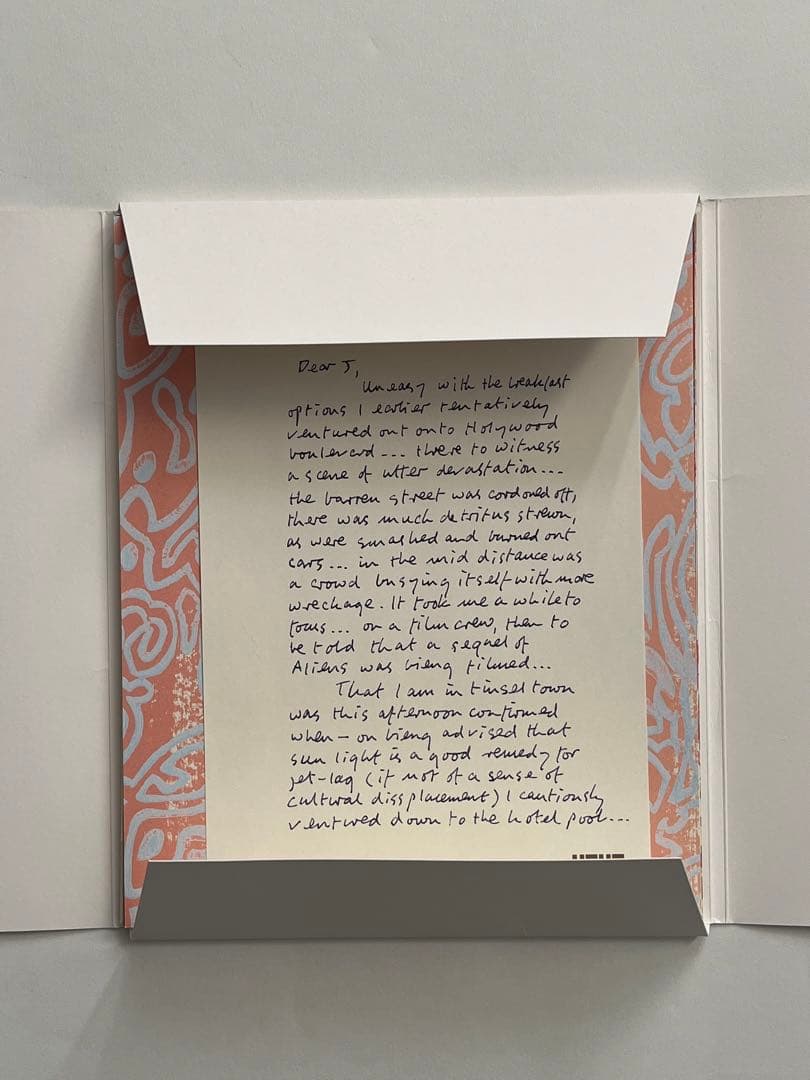 Dear J,
Uneasy with the breakfast
options I earlier tentatively
ventured out onto Holywood
boulevard... there to witness
a scene of utter devastation...
the barren street was cordoned off,
there was much detritus strewn,
as were smashed and burned out
cars... in the mid distance was
a crowd busying itself with more
wreckage. It took me a while to
focus... on a film crew, then to
be told that a sequel of
Aliens was bieng filmed...
That I am in tinsel town
was this afternoon confirmed
when - on bieng advised that
sun light is a good remedy for
jet-lag (if not of a sense of
cultural dissplacement) I cautiously
ventured down to the hotel pool...